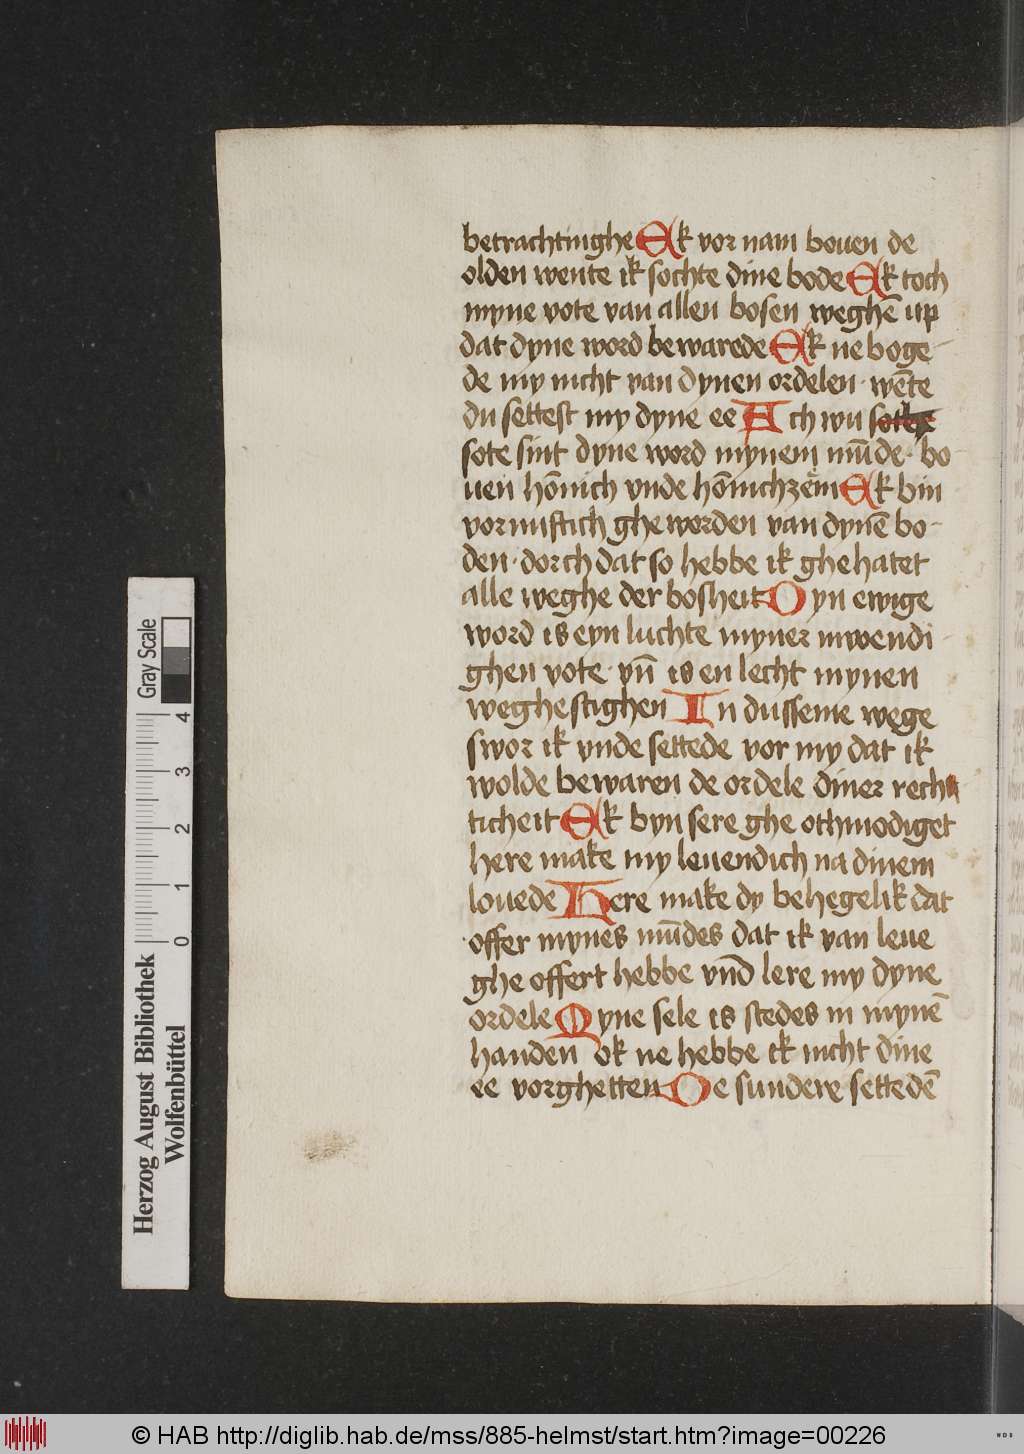 betrachtinghe Ek vor nam bouen de
olden wente ik sochte dine bode Ek toch
myne vote van allen bosen weghē up
dat dyne word bewarede Ek ne boge-
de my nicht van dynen ordelen · wēte
du settest my dyne ee Ach wu
sote sint dyne word mynem mūde · bo
uen hōnich vnde hōnichzēm Ek bin
vornuftich gheworden van dynē bo-
den · dorch dat so hebbe ik ghehatet
alle weghe der bosheit Dyn ewige
word is eyn luchte myner inwendi
ghen vote · vn̄ is en lecht mynen
weghestighen In dusseme wege
swor ik vnde settede vor my dat ik
wolde bewaren de ordele diner rech
ticheit Ek byn sere ghe othmodiget
here make my leuendich na dinem
louede Here make dy behegelik dat
offer mynes mūdes dat ik van leue
ghe offert hebbe vnd̄ lere my dyne
ordele Myne sele is stedes in mynē
handen ok ne hebbe ik nicht dine
ee vorghetten De sundere settedē
Herzog August Bibliothek
Wolfenbüttel
0 1 2 3 4
Gray Scale
© HAB http://diglib.hab.de/mss/885-helmst/start.htm?image=00226